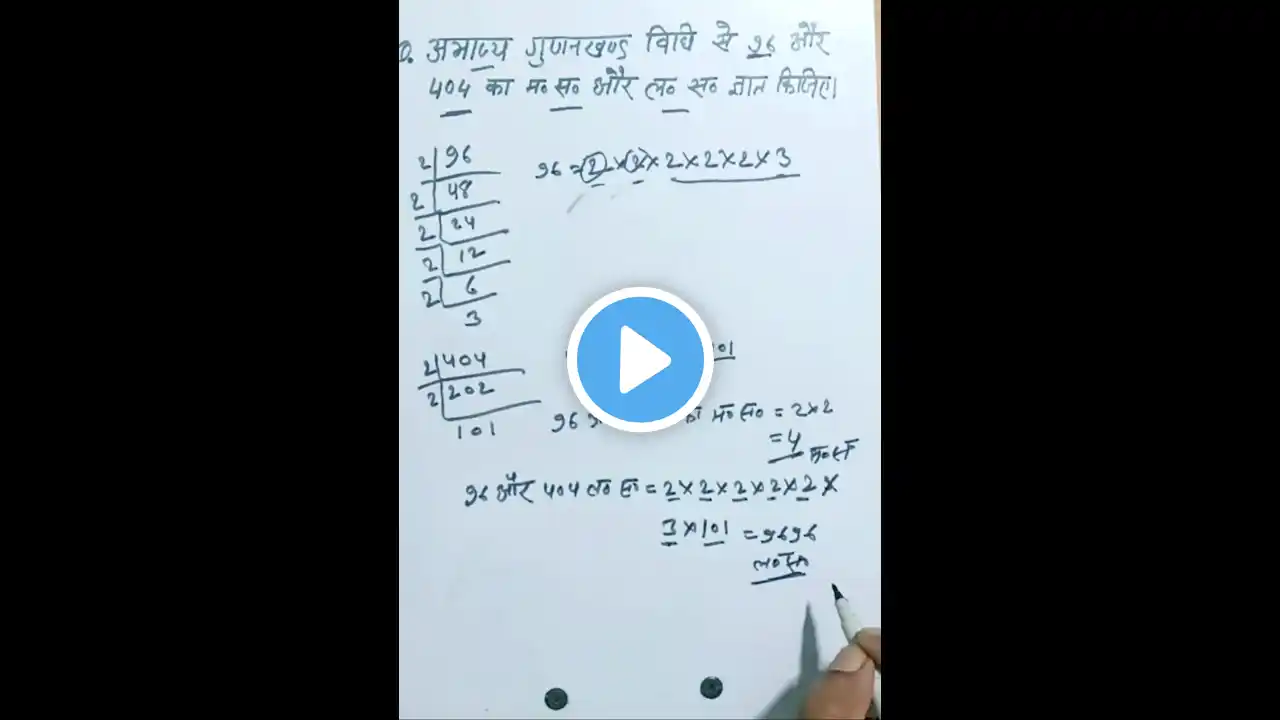 Q. अभाज्य गुणनखण्ड विधि से 96 और
404 का म० स० और ल० स० ज्ञात किजिए।
2 96
2 48
2 24
2 12
2 6
3
96 = 2 × 2 × 2 × 2 × 2 × 3
2 404
2 202
101
101
96 का म० स० = 2 × 2
= 4 म० स०
96 और 404 ल० स० = 2 × 2 × 2 × 2 × 2 ×
3 × 101 = 9696
ल० स०